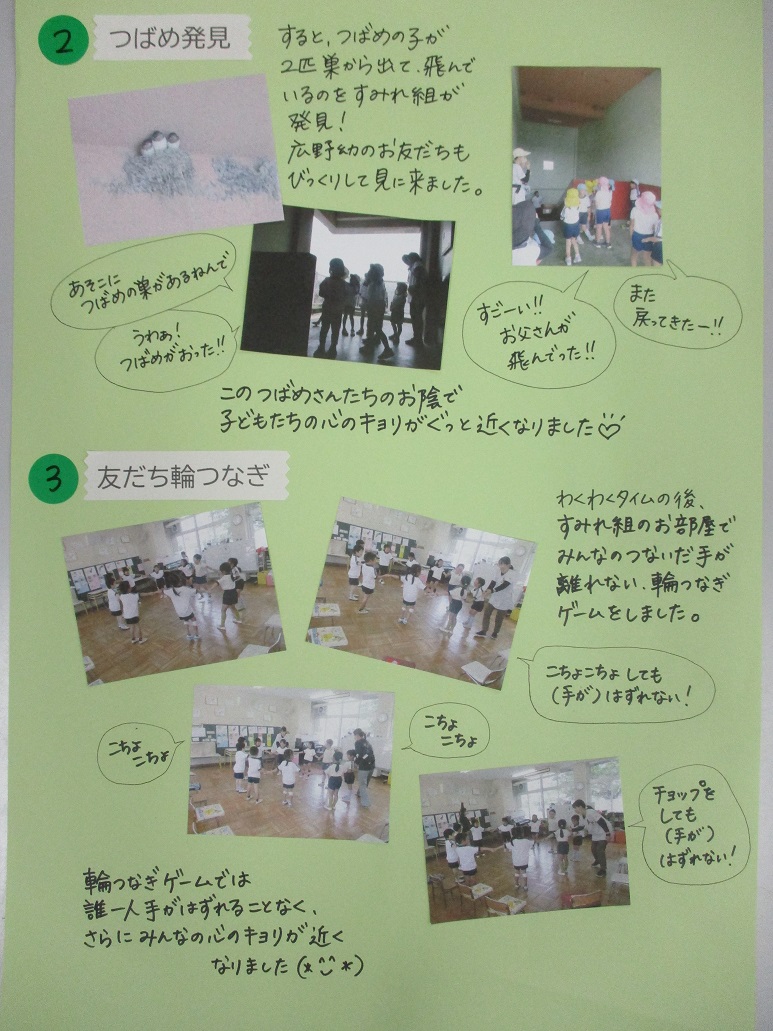 2 つばめ発見
すると、つばめの子が
2匹巣から出て、飛んで
いるのをすみれ組が
発見！
広野幼のお友だちも
びっくりして見に来ました。
あそこに
つばめの巣があるねんで
うわぁ！
つばめがおった!!
すごーい!!
お父さんが
飛んでった!!
また
戻ってきたー!!
このつばめさんたちのお陰で
子どもたちの心のキョリがぐっと近くなりました♡
3 友だち輪つなぎ
わくわくタイムの後、
すみれ組のお部屋で
みんなのつないだ手が
離れない、輪つなぎ
ゲームをしました。
こちょこちょしても
(手が)はずれない！
こちょ
こちょ
こちょ
こちょ
チョップを
しても
(手が)
はずれない！
輪つなぎゲームでは
誰一人手がはずれることなく、
さらにみんなの心のキョリが近く
なりました(*^^*)